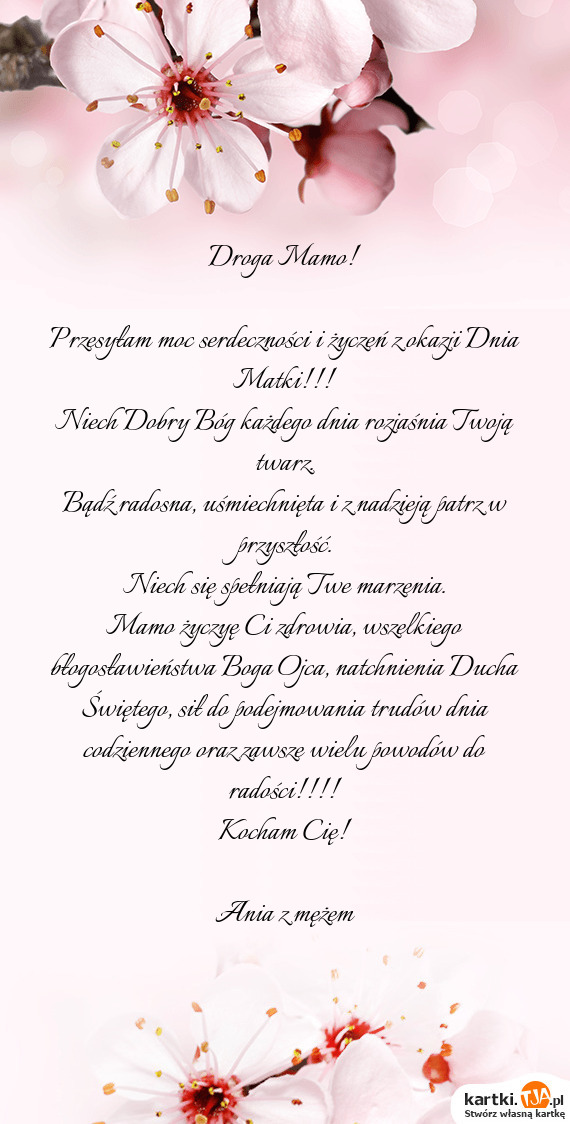 Droga Mamo!
Przesyłam moc serdeczności i życzeń z okazji Dnia
Matki!!!
Niech Dobry Bóg każdego dnia rozjaśnia Twoją
twarz.
Bądź radosna, uśmiechnięta i z nadzieją patrz w
przyszłość.
Niech się spełniają Twe marzenia.
Mamo życzyę Ci zdrowia, wszelkiego
błogosławieństwa Boga Ojca, natchnienia Ducha
Świętego, sił do podejmowania trudów dnia
codziennego oraz zawsze wielu powodów do
radości!!!!
Kocham Cię!
Ania z mężem
kartki.TJA.pl
Stwórz własną kartkę